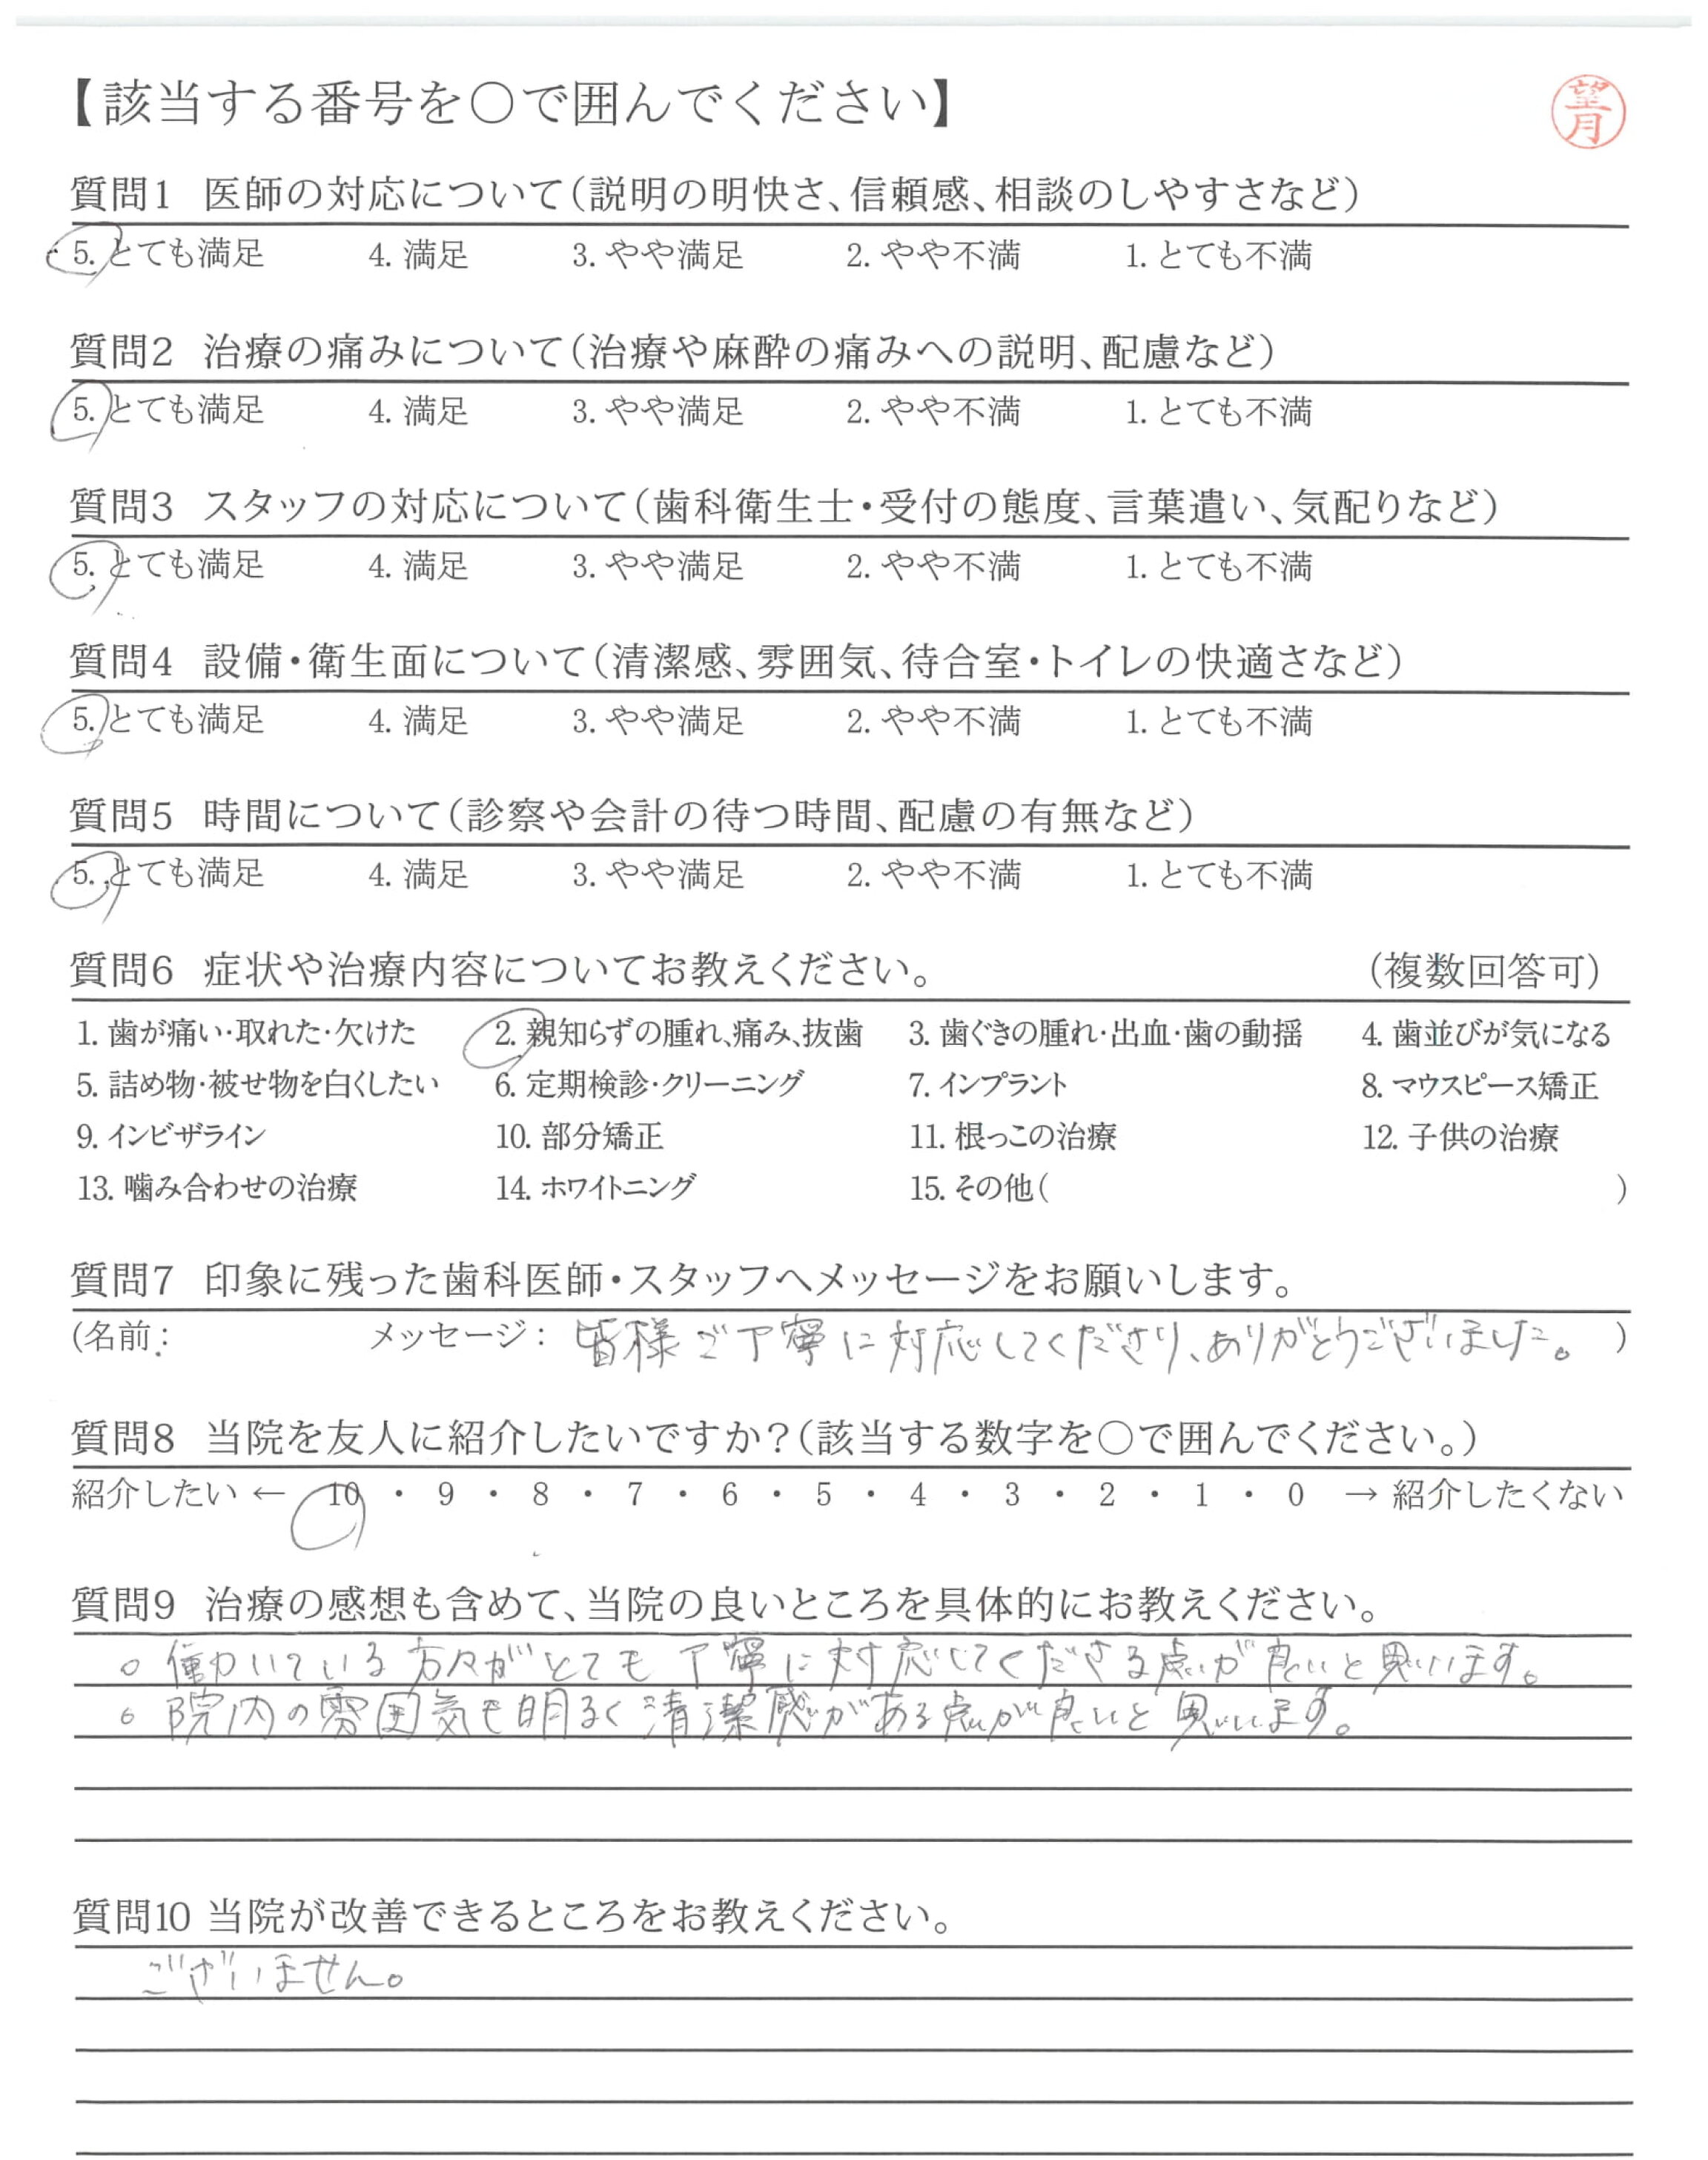 【該当する番号を〇で囲んでください】
望月
質問1 医師の対応について(説明の明快さ、信頼感、相談のしやすさなど)
5. とても満足 4. 満足 3. やや満足 2. やや不満 1. とても不満
質問2 治療の痛みについて(治療や麻酔の痛みへの説明、配慮など)
5. とても満足 4. 満足 3. やや満足 2. やや不満 1. とても不満
質問3 スタッフの対応について(歯科衛生士・受付の態度、言葉遣い、気配りなど)
5. とても満足 4. 満足 3. やや満足 2. やや不満 1. とても不満
質問4 設備・衛生面について(清潔感、雰囲気、待合室・トイレの快適さなど)
5. とても満足 4. 満足 3. やや満足 2. やや不満 1. とても不満
質問5 時間について(診察や会計の待つ時間、配慮の有無など)
5. とても満足 4. 満足 3. やや満足 2. やや不満 1. とても不満
質問6 症状や治療内容についてお教えください。 (複数回答可)
1. 歯が痛い・取れた・欠けた 2. 親知らずの腫れ、痛み、抜歯 3. 歯ぐきの腫れ・出血・歯の動揺 4. 歯並びが気になる
5. 詰め物・被せ物を白くしたい 6. 定期検診・クリーニング 7. インプラント 8. マウスピース矯正
9. インビザライン 10. 部分矯正 11. 根っこの治療 12. 子供の治療
13. 噛み合わせの治療 14. ホワイトニング 15. その他( )
質問7 印象に残った歯科医師・スタッフへメッセージをお願いします。
(名前: メッセージ: 皆様ご丁寧に対応してくださり、ありがとうございました。 )
質問8 当院を友人に紹介したいですか?(該当する数字を〇で囲んでください。)
紹介したい ← 10 ・ 9 ・ 8 ・ 7 ・ 6 ・ 5 ・ 4 ・ 3 ・ 2 ・ 1 ・ 0 → 紹介したくない
質問9 治療の感想も含めて、当院の良いところを具体的にお教えください。
○ 働いている方々がとても丁寧に対応してくださる点が良いと思います。
○ 院内の雰囲気も明るく清潔感がある点が良いと思います。
質問10 当院が改善できるところをお教えください。
ございません。